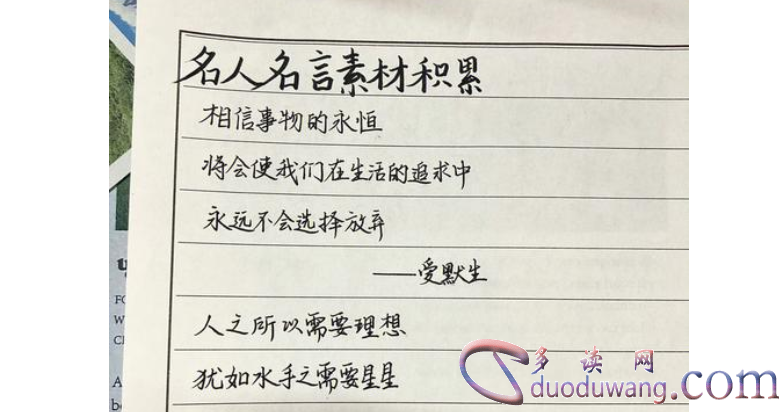 名人名言素材积累
相信事物的永恒
将会使我们在生活的追求中
永远不会选择放弃
——受默生
人之所以需要理想
犹如水手之需要星星
多读网
duoduwang.com